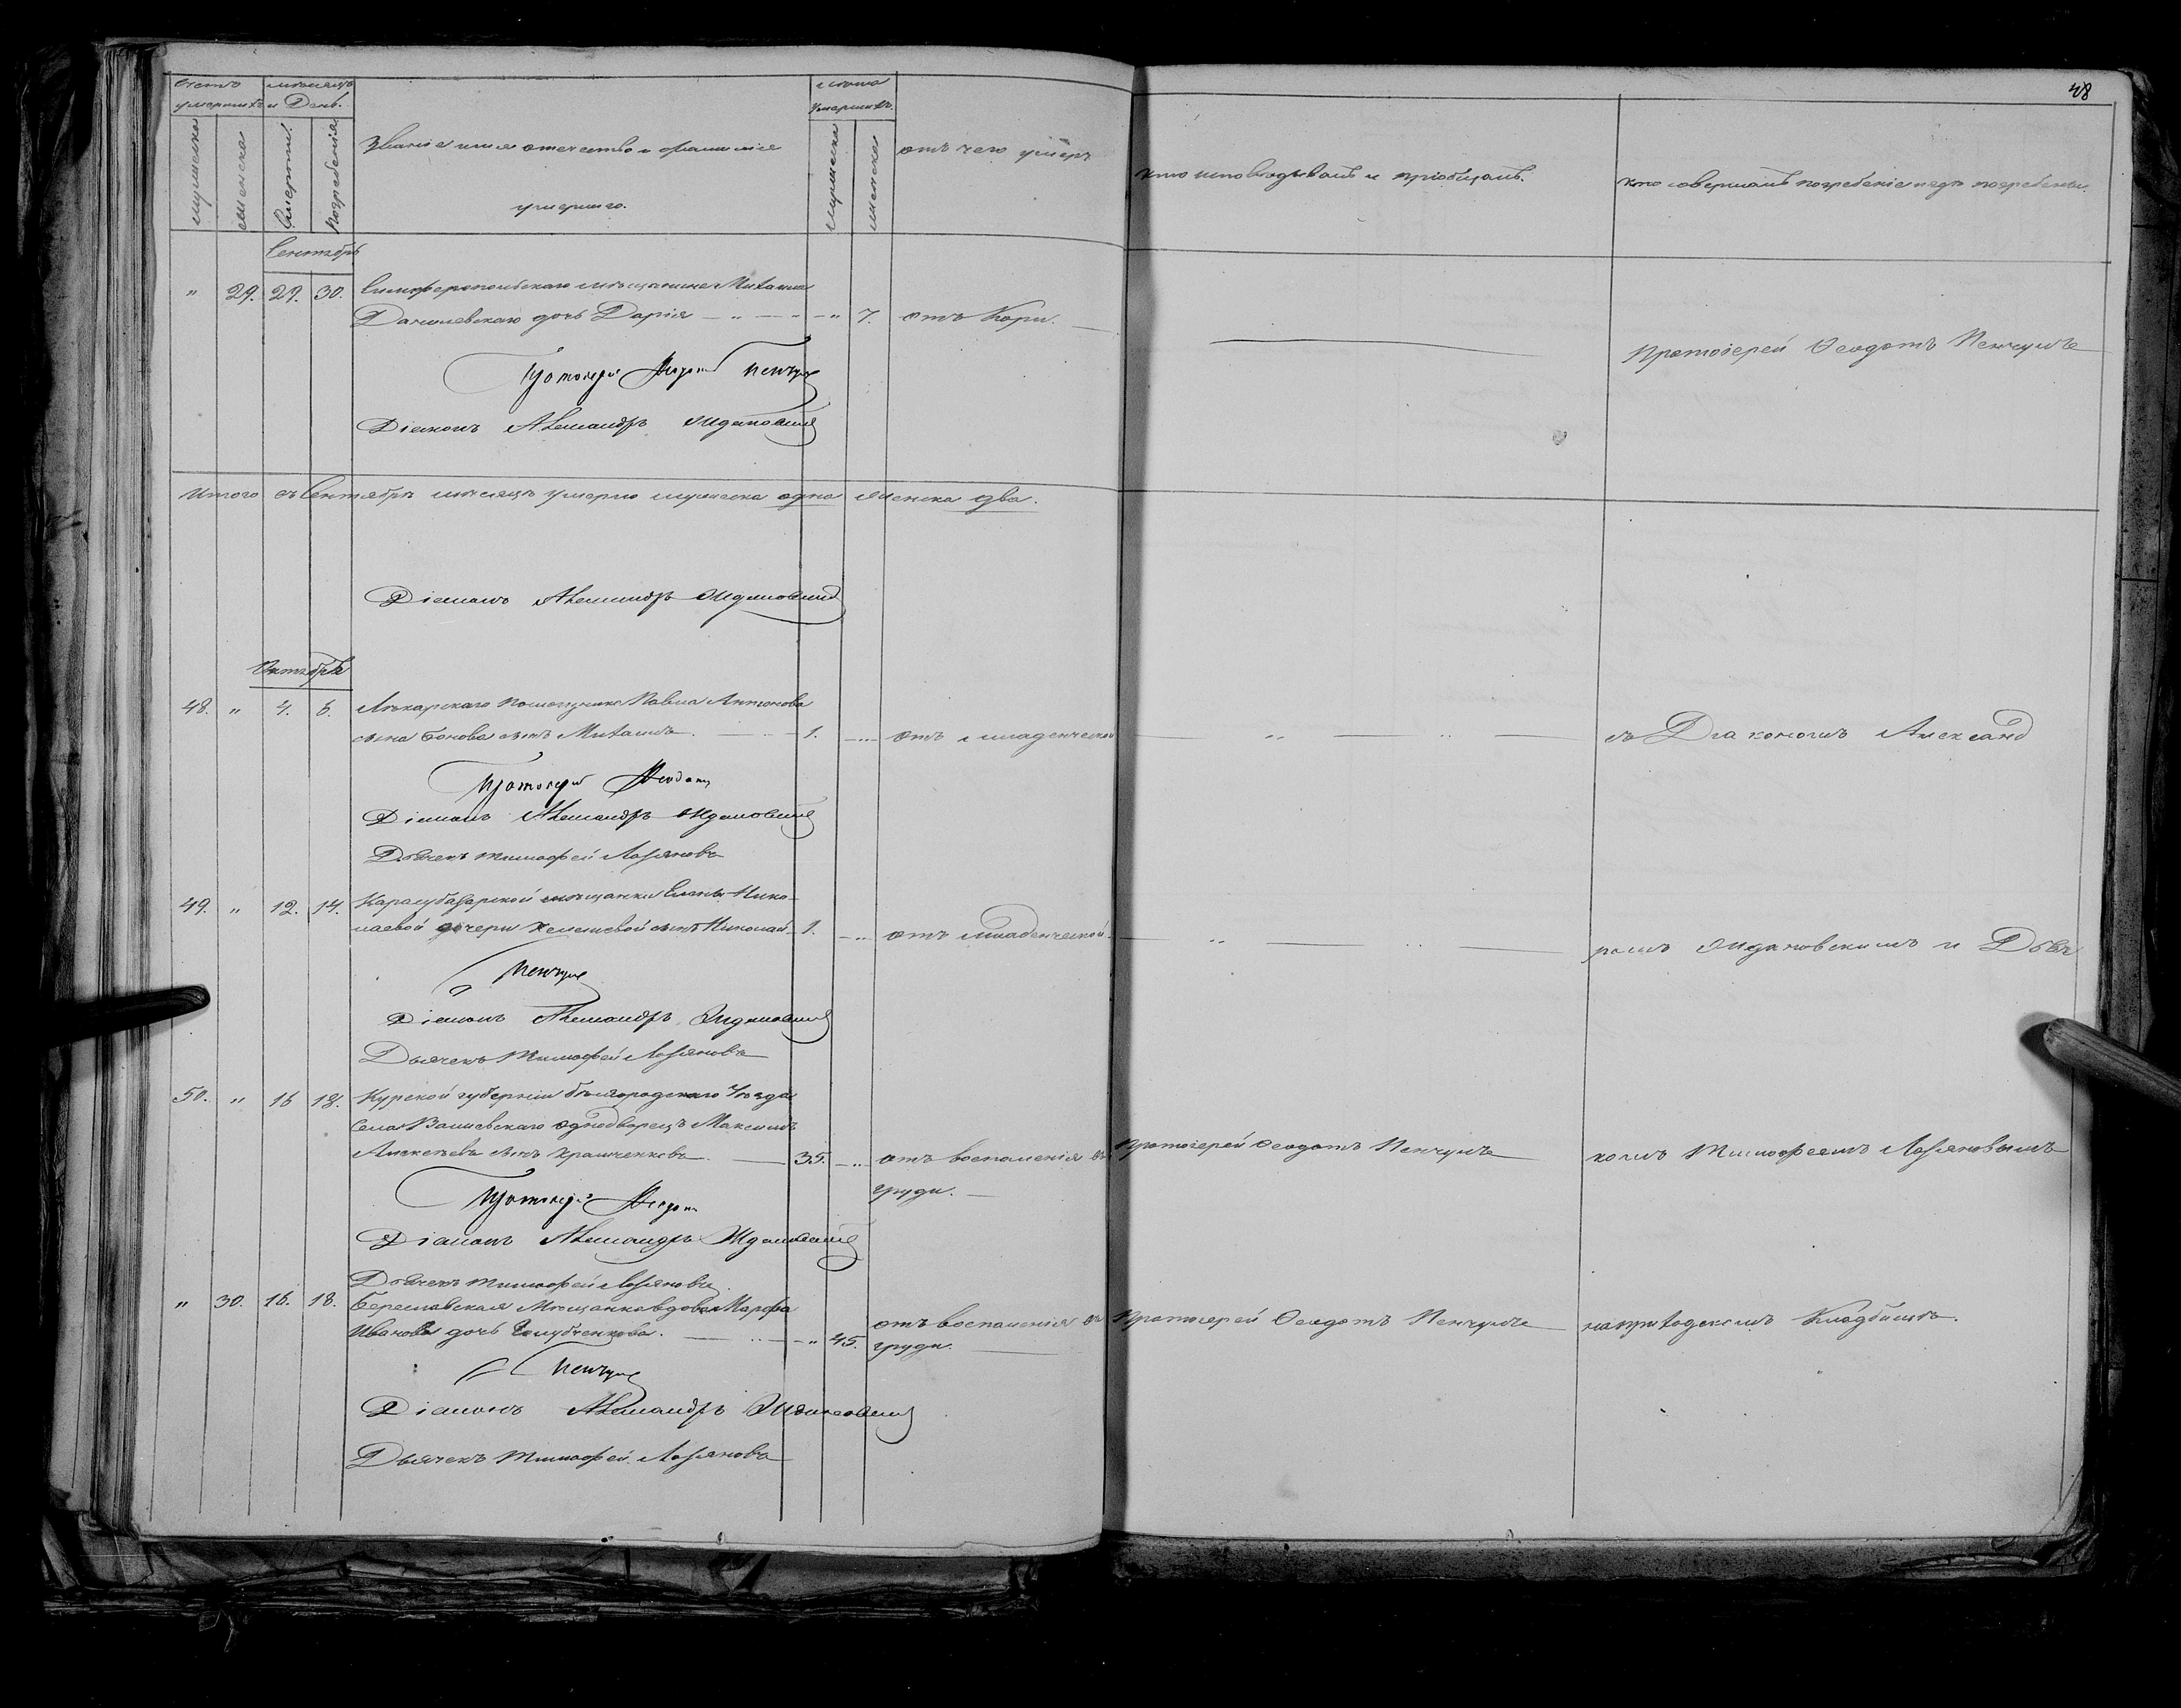 48
Счетъ умершихъ
мѣсяцъ и День.
Званіе имя отечество и фамилія
умершаго.
лѣта умершихъ.
отъ чего умеръ
кто исповѣдывалъ и пріобщалъ.
кто совершалъ погребеніе и гдѣ погребены.
мужеска
женска
Смерти.
Погребенія
мужеска
женска
Сентябрь
" 29. 29. 30. Симферопольскаго мѣщанина Михаила
Данилевскаго дочь Дарія — " — " 7. отъ Кори.
Протоіерей Ѳеодотъ Пенчулъ
Протоіерей Ѳеодотъ Пенчулъ
Діаконъ Александръ Ждановскій
Итого въ Сентябрѣ мѣсяцѣ умерло мужеска одна женска два.
Діаконъ Александръ Ждановскій
Октябрь
48. " 4. 6. Лѣкарскаго помощника Павла Антонова
сына сынъ Михаилъ. 1. отъ младенческой
съ Діакономъ Александ
Протоіерей Ѳеодотъ
Діаконъ Александръ Ждановскій
Дьячекъ Тимофей Лозановъ
49. " 12. 14. Карасубазарской мѣщанки Елены Нико-
лаевой дочери сынъ Николай 1. отъ младенческой
ромъ Ждановскимъ и Дьяч
Пенчулъ
Діаконъ Александръ Ждановскій
Дьячекъ Тимофей Лозановъ
50. " 16 18. Курской губерніи бѣлгородскаго Уѣзда
села однодворецъ Максимъ
Алексѣевъ сынъ Храмченковъ. 35. отъ воспаленія въ
груди.
Протоіерей Ѳеодотъ Пенчулъ
комъ Тимофеемъ Лозановымъ
Протоіерей Ѳеодотъ
Діаконъ Александръ Ждановскій
Дьячекъ Тимофей Лозановъ
" 30. 16. 18. Бериславская Мѣщанка вдова Марфа
Иванова дочь Голубченкова. " 45. отъ воспаленія въ
груди.
Протоіерей Ѳеодотъ Пенчулъ
на приходскомъ Кладбищѣ.
Пенчулъ
Діаконъ Александръ Ждановскій
Дьячекъ Тимофей Лозановъ